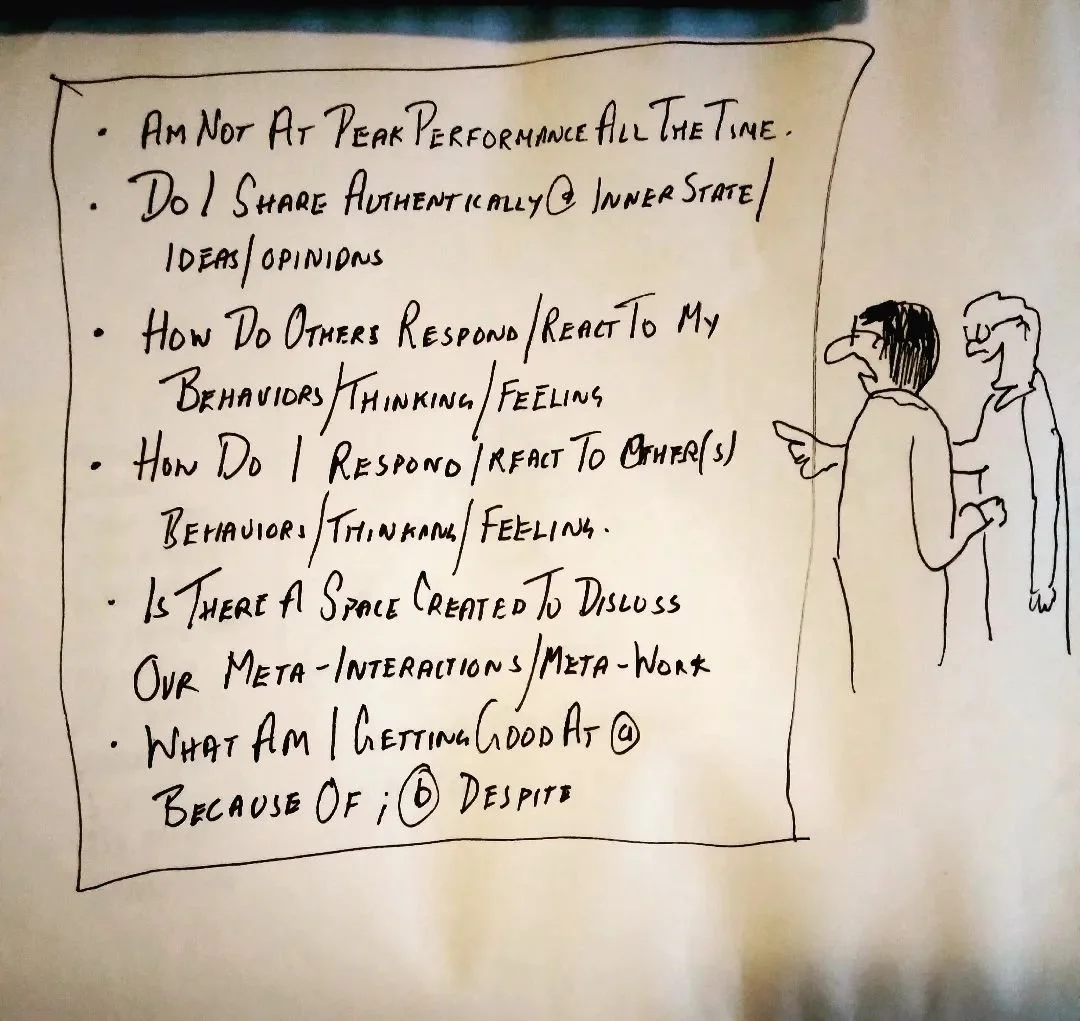 • AM NOT AT PEAK PERFORMANCE ALL THE TIME.
• DO I SHARE AUTHENTICALLY @ INNER STATE/
IDEAS/OPINIONS
• HOW DO OTHERS RESPOND/REACT TO MY
BEHAVIORS/THINKING/FEELING
• HOW DO I RESPOND/REACT TO OTHER(S)
BEHAVIORS/THINKING/FEELING.
• IS THERE A SPACE CREATED TO DISCUSS
OUR META-INTERACTIONS/META-WORK
• WHAT AM I GETTING GOOD AT ⓐ
BECAUSE OF ; ⓑ DESPITE